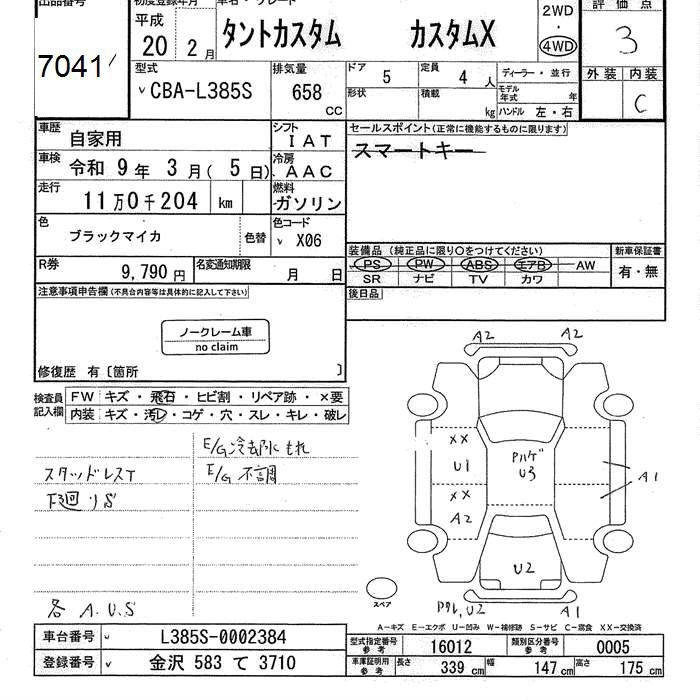 出品番号 初度登録年月 車名・グレード 評価点
7041 平成 20 2月 タントカスタム カスタムX 2WD 4WD 3
型式 排気量 ドア 5 定員 4 人 ディーラー・並行 外装 内装
CBA-L385S 658 CC 形状 積載 kg モデル年式 年 ハンドル 左・右 C
車歴 自家用 シフト IAT セールスポイント(正常に機能するものに限ります)
車検 令和 9年 3月(5日) 冷房 AAC スマートキー
走行 11万0千204 km 燃料 ガソリン
色 ブラックマイカ 色替 色コード X06
装備品 (純正品に限り○をつけてください) 新車保証書
R券 9,790円 名変通知期限 月 日 PS PW ABS エアB AW 有・無
SR ナビ TV カワ
注意事項申告欄(不具合内容等は具体的に記入して下さい) 後日品
ノークレーム車
no claim
修復歴 有〔箇所 〕
検査員記入欄 FW キズ・飛石・ヒビ割・リペア跡・×要
内装 キズ・汚レ・コゲ・穴・スレ・キレ・破レ
A2 A2
E/G冷却水もれ
スタッドレスT E/G不調
下廻りS
XX U1 XX A2
U3
A1
U2
各 A.U.S
スペア
U2 A1
A-キズ E-エクボ U-凹み W-補修跡 S-サビ C-腐食 XX-交換済
車台番号 L385S-0002384 型式指定番号 参考 16012 類別区分番号 参考 0005
登録番号 金沢 583 て 3710 車庫証明用 参考 長さ 339 cm 幅 147 cm 高さ 175 cm